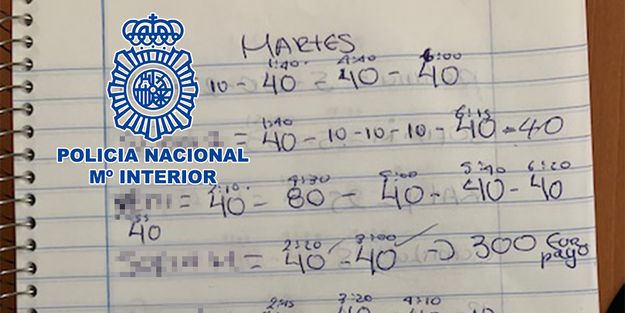 MARTES
1:40 4:40 6:00
10 - 40 - 40 - 40
1:40 6:15
= 40 - 10 - 10 - 10 - 40 - 40
POLICIA NACIONAL
Mº INTERIOR
2:10 4:30 5:00 5:40 6:20
= 40 - 80 - 40 - 40 - 40
40
2:20 3:00
= 40 - 40 300 Euro
pago
2:45 3:20 4:10